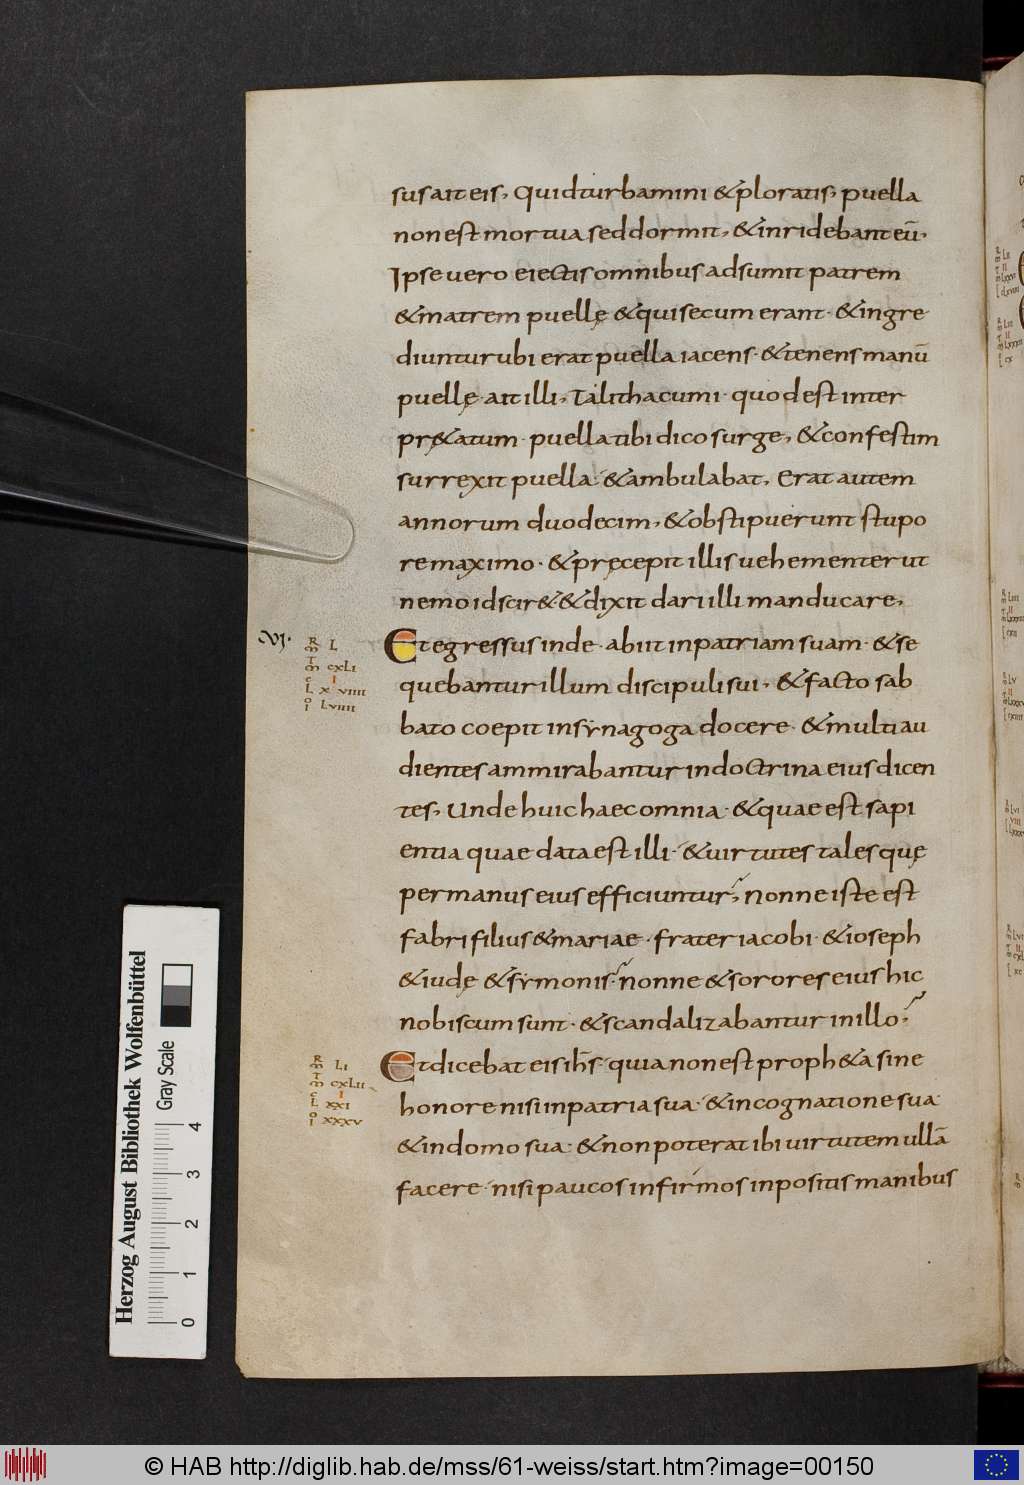 sus ait eis, Quid turbamini & ploratis, puella
non est mortua sed dormit, & inridebant eū,
Ipse vero eiectis omnibus adsumit patrem
& matrem puellę & qui secum erant· & ingre
diuntur ubi erat puella iacens· & tenens manū
puellę ait illi, Talitha cumi· quod est inter
pr&atum· puella tibi dico surge, & confestim
surrexit puella· & ambulabat, Erat autem
annorum duodecim, & obstipuerunt stupo
re maximo· & pręcepit illis uehementer ut
nemo id scir&· & dixit dari illi manducare,
VI·
Et egressus inde· abiit in patriam suam· & se
quebantur illum discipuli sui, & facto sab
bato coepit in synagoga docere· & multi au
dientes ammirabantur in doctrina eius dicen
tes, Unde huic haec omnia· & quae est sapi
entia quae data est illi· & uirtutes tales quę
per manus eius efficiuntur, Nonne iste est
fabri filius & mariae· frater iacobi· & ioseph
& iudę & symonis· nonne & sorores eius hic
nobiscum sunt· & scandalizabantur in illo,
Et dicebat eis ih̄s· quia non est proph&a sine
honore nisi in patria sua· & in cognatione sua·
& in domo sua· & non poterat ibi uirtutem ullā
facere· nisi paucos infirmos inpositis manibus
R L
m
T
m cxLi
c I
L x viiii
o
I Lviiii
R
m Li
T
m cxLii
c I
L xxi
o
I xxxv
Herzog August Bibliothek Wolfenbüttel
Gray Scale
0 1 2 3 4
© HAB http://diglib.hab.de/mss/61-weiss/start.htm?image=00150